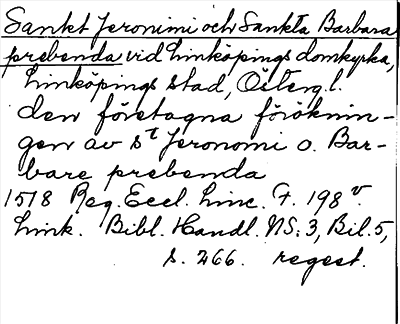 Sankt Jeronimi och Sankta Barbara
prebenda vid Linköpings domkyrka,
Linköpings stad, Österg.l.
den företagna föröknin-
gen av St Jeronomi o. Bar-
bare prebenda
1518 Reg. Eccl. Linc. F. 198 v.
Link. Bibl. Handl. NS: 3, Bil. 5,
s. 266. regest.